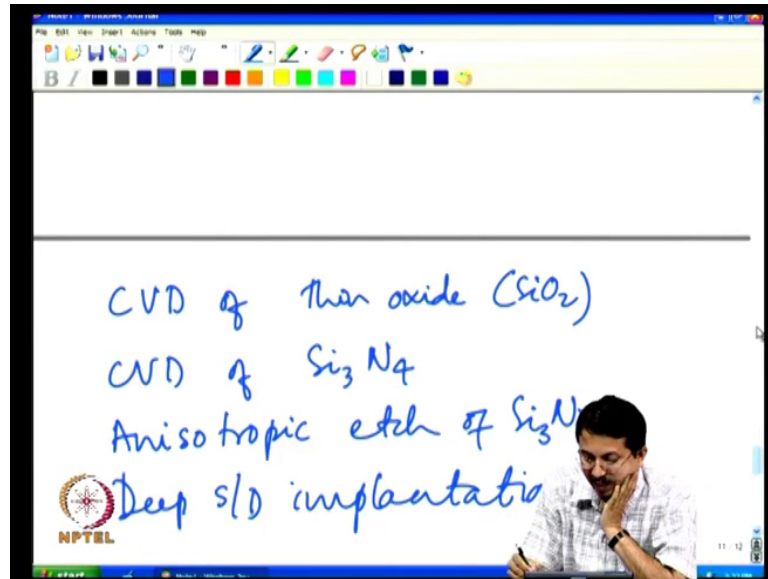 Note1 - Windows Journal
File Edit View Insert Actions Tools Help
B I
CVD of thin oxide (SiO2)
CVD of Si3 N4
Anisotropic etch of Si3N
Deep S/D implantatio
NPTEL
11 / 12
start